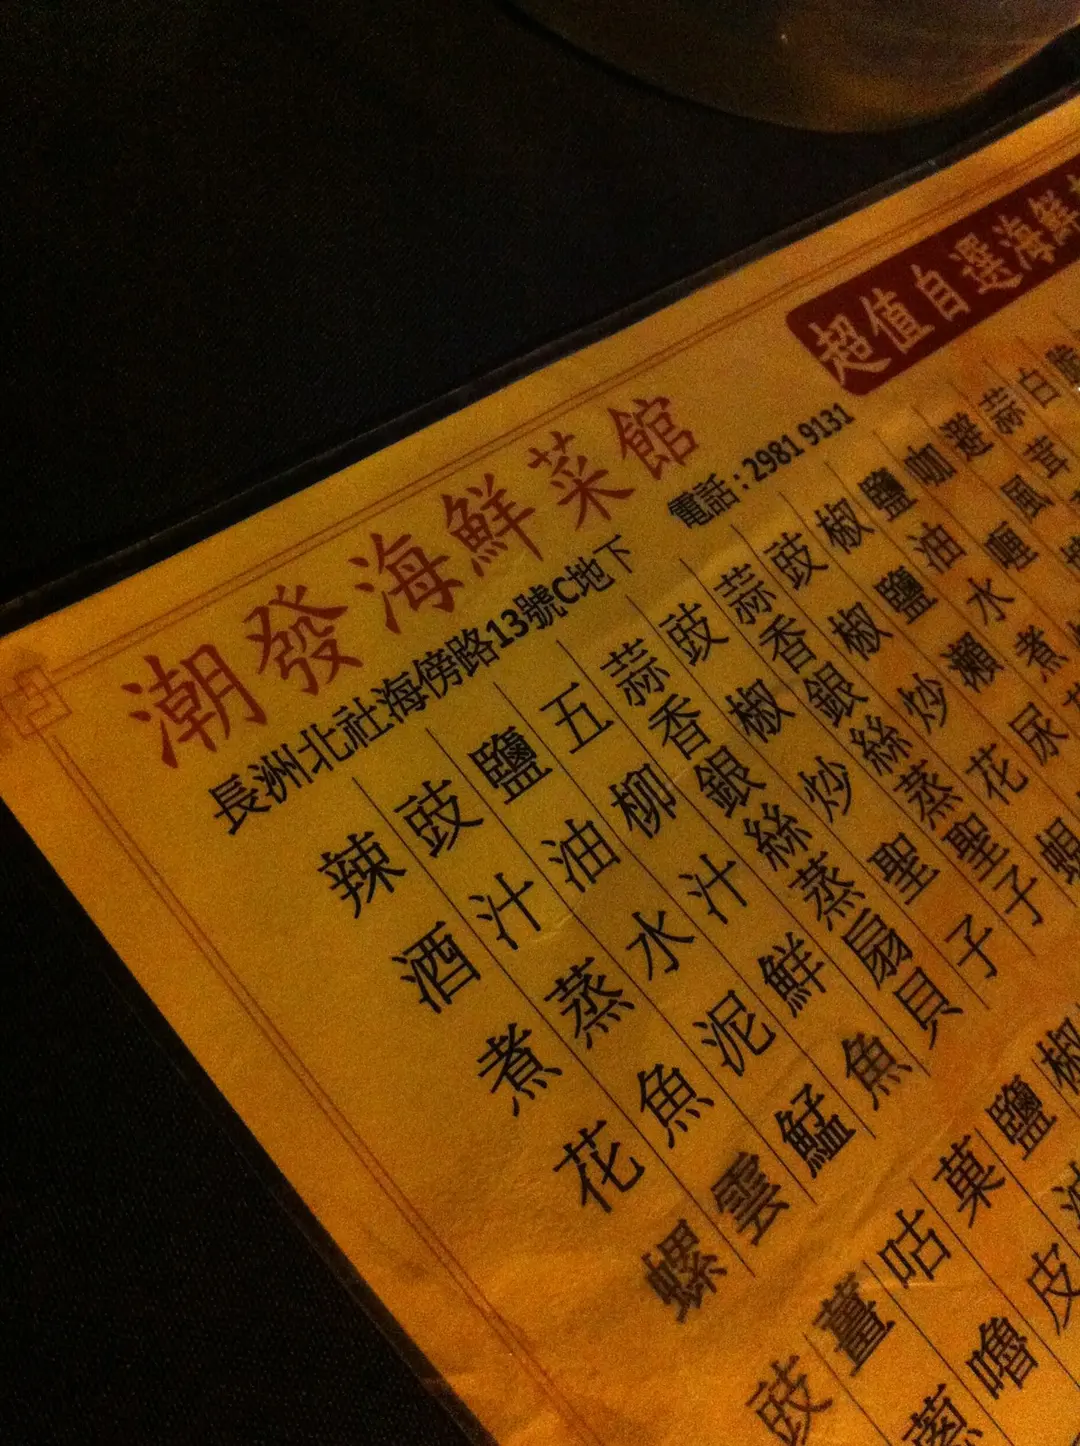 潮發海鮮菜館
長洲北社海傍路13號C地下
電話：2981 9131
超值自選海鮮
辣酒煮花螺
豉汁蒸魚雲
鹽油水泥鯭
五柳汁鮮魚
蒜香銀絲蒸扇貝
豉椒炒聖子
蒜香銀絲蒸聖子
豉椒炒花蜆
椒鹽瀨尿
鹽油水煮
咖喱
避風
蒜茸
白
豉
薑蔥
咕嚕
菓皮
鹽油
椒